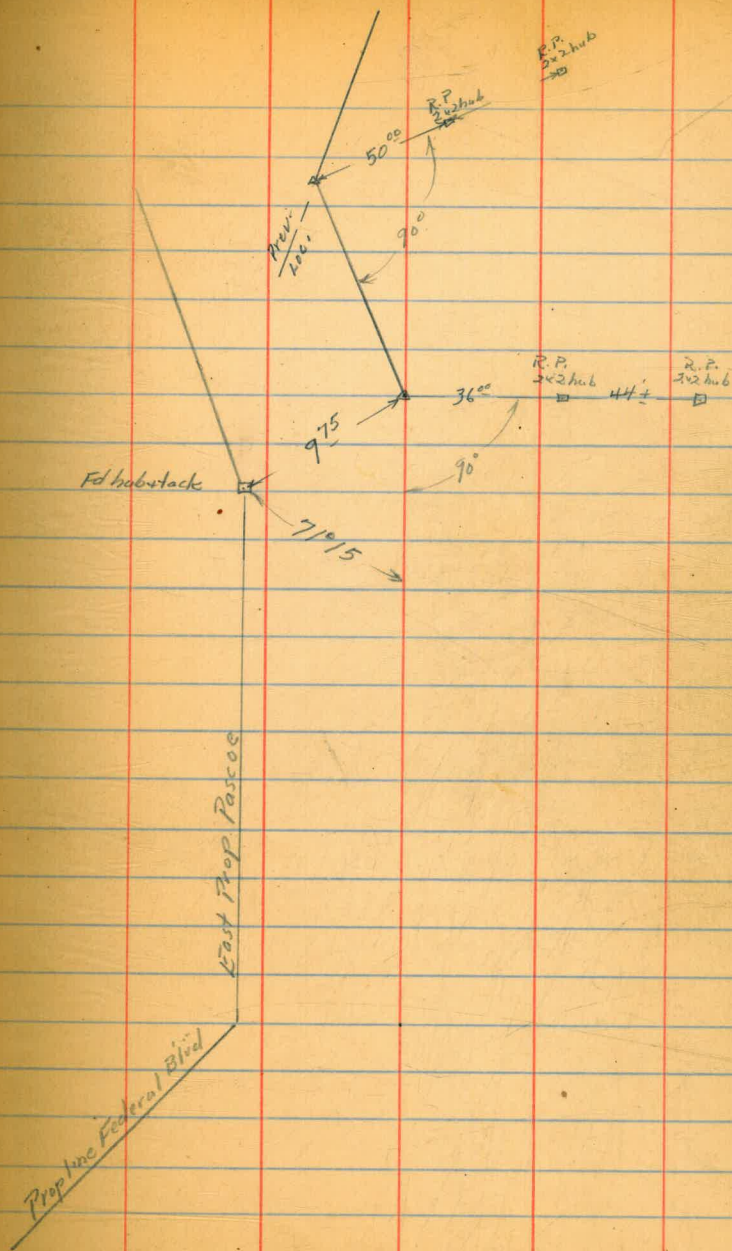 R.P.
2x2 hub
R.P.
2x2 hub
50 00
90°
R.P.
2x2 hub
R.P.
2x2 hub
36 00
44'±
9 75
90°
Fd hub & tack
71°15
East Prop. Pascoe
Prop line Federal Blvd